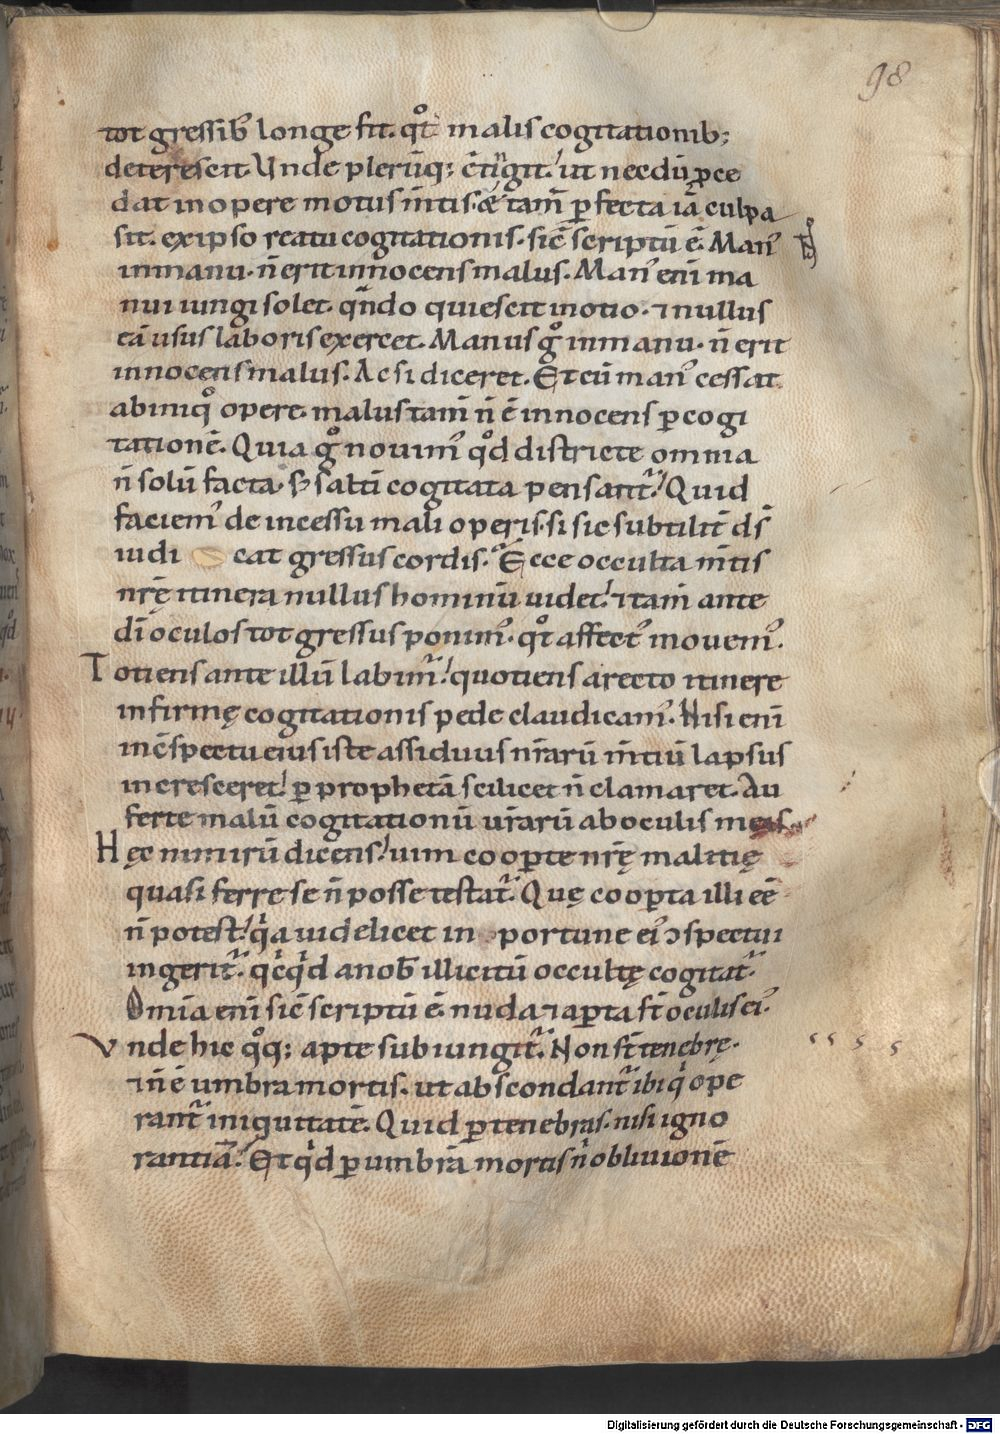 98
tot gressib; longe fit. qͦt malis cogitationib;
deterescit. Unde plerūq; c̄tigit! ut necdū p̄ce
dat in opere motus m̄tis. & tam̄ ꝑfecta iā culpa
sit. ex ipso reatu cogitationis. sic̄ scriptū ē. Man᾽
in manu. n̄ erit innocens malus. Man᾽ eni ma
nui iungi solet. qn̄do quiescit in otio. ⁊ nullus
eā usus laboris exercet. Manus gͦ in manu. n̄ erit
innocens malus. Ac si diceret. Et cū man᾽ cessat
ab iniqͦ opere. malus tam̄ n̄ ē innocens ꝑ cogi
tationē. Quia gͦ nouim᾽ qͦd districte omnia
n̄ solū facta. s; saltī cogitata pensant᷑! Quid
faciem᾽ de incessu mali operis. si sic subtilit̄ d̄s
iudi cat gressus cordis. Ecce occulta m̄tis
nr̄ę itinera nullus hominū uidet! ⁊ tam̄ ante
dī oculos tot gressus ponim᾽. qͦt affect᾽ mouem᾽.
Totiens ante illū labim᷑! quotiens a recto itinere
infirmę cogitationis pede claudicam᾽. Nisi eni
in c̄spectu eius iste assiduus nr̄arū m̄tiū lapsus
incresceret! ꝑ prophetā scilicet n̄ clamaret. Au
ferte malū cogitationū ur̄arū ab oculis meis.
Hęc nimirū dicens! uim coopte nr̄ę malitię
quasi ferre se n̄ posse testat᷑. Quę cooꝑta illi eē
n̄ potest! qͥa uidelicet in portune ei᾽ ɔspectui
ingerit᷑. qͥcqͥd a nob̄ illicitū occultę cogitat᷑.
Omīa eni sic̄ scriptū ē. nuda ⁊ aꝑta st̄ oculis ei᾽.
Unde hic qͦq; apte subiungit᷑. Non st̄ tenebrę.
⁊ n̄ ē umbra mortis. ut abscondant᷑ ibi qͥ ope
rant᷑ iniquitatē. Quid ꝑ tenebras. nisi igno
rantiā! Et qͥd ꝑ umbrā mortis n̄ obliuionē
Digitalisierung gefördert durch die Deutsche Forschungsgemeinschaft - DFG